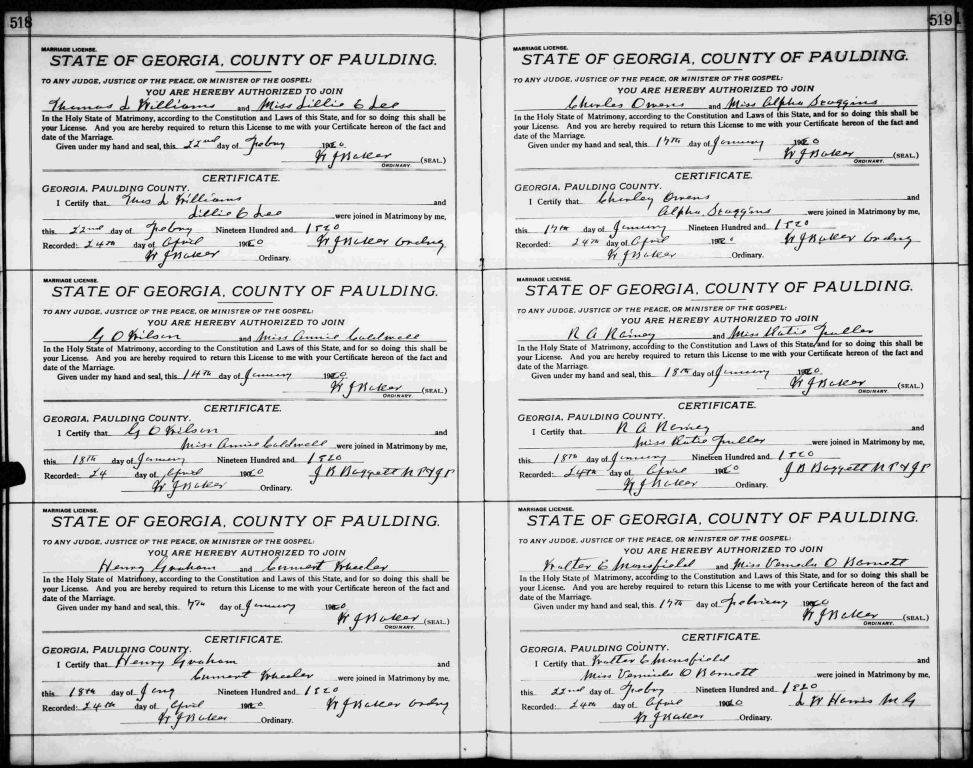 518
MARRIAGE LICENSE.
STATE OF GEORGIA, COUNTY OF PAULDING.
TO ANY JUDGE, JUSTICE OF THE PEACE, OR MINISTER OF THE GOSPEL:
YOU ARE HEREBY AUTHORIZED TO JOIN
Thomas L Williams and Miss Lillie C Lee
In the Holy State of Matrimony, according to the Constitution and Laws of this State, and for so doing this shall be
your License. And you are hereby required to return this License to me with your Certificate hereof of the fact and
date of the Marriage.
Given under my hand and seal, this 22nd day of Febry 1920
W J Baker (SEAL.)
ORDINARY.
CERTIFICATE.
GEORGIA, PAULDING COUNTY.
I Certify that Thos L Williams and
Lillie C Lee were joined in Matrimony by me,
this 22nd day of Febry Nineteen Hundred and 1920
Recorded: 24th day of April 1920 W J Baker Ordny
W J Baker Ordinary.
MARRIAGE LICENSE.
STATE OF GEORGIA, COUNTY OF PAULDING.
TO ANY JUDGE, JUSTICE OF THE PEACE, OR MINISTER OF THE GOSPEL:
YOU ARE HEREBY AUTHORIZED TO JOIN
G O Wilson and Miss Annie Caldwell
In the Holy State of Matrimony, according to the Constitution and Laws of this State, and for so doing this shall be
your License. And you are hereby required to return this License to me with your Certificate hereof of the fact and
date of the Marriage.
Given under my hand and seal, this 14th day of January 1920
W J Baker (SEAL)
ORDINARY.
CERTIFICATE.
GEORGIA, PAULDING COUNTY.
I Certify that G O Wilson and
Miss Annie Caldwell were joined in Matrimony by me,
this 18th day of January Nineteen Hundred and 1920
Recorded: 24 day of April 1920 J B Baggett N P & J P
W J Baker Ordinary.
MARRIAGE LICENSE.
STATE OF GEORGIA, COUNTY OF PAULDING.
TO ANY JUDGE, JUSTICE OF THE PEACE, OR MINISTER OF THE GOSPEL:
YOU ARE HEREBY AUTHORIZED TO JOIN
Henry Graham and Wheeler
In the Holy State of Matrimony, according to the Constitution and Laws of this State, and for so doing this shall be
your License. And you are hereby required to return this License to me with your Certificate hereof of the fact and
date of the Marriage.
Given under my hand and seal, this 7th day of January 1920
W J Baker (SEAL)
ORDINARY.
CERTIFICATE.
GEORGIA, PAULDING COUNTY.
I Certify that Henry Graham and
Wheeler were joined in Matrimony by me,
this 18th day of Jany Nineteen Hundred and 1920
Recorded: 24th day of April 1920 W J Baker Ordny
W J Baker Ordinary.
519
MARRIAGE LICENSE.
STATE OF GEORGIA, COUNTY OF PAULDING.
TO ANY JUDGE, JUSTICE OF THE PEACE, OR MINISTER OF THE GOSPEL:
YOU ARE HEREBY AUTHORIZED TO JOIN
Charles Owens and Miss Alpha Scoggins
In the Holy State of Matrimony, according to the Constitution and Laws of this State, and for so doing this shall be
your License. And you are hereby required to return this License to me with your Certificate hereof of the fact and
date of the Marriage.
Given under my hand and seal, this 17th day of January 1920
W J Baker (SEAL)
ORDINARY.
CERTIFICATE.
GEORGIA, PAULDING COUNTY.
I Certify that Charley Owens and
Alpha Scoggins were joined in Matrimony by me,
this 17th day of January Nineteen Hundred and 1920
Recorded: 24th day of April 1920 W J Baker Ordny
W J Baker Ordinary.
MARRIAGE LICENSE.
STATE OF GEORGIA, COUNTY OF PAULDING.
TO ANY JUDGE, JUSTICE OF THE PEACE, OR MINISTER OF THE GOSPEL:
YOU ARE HEREBY AUTHORIZED TO JOIN
R A Rainey and Miss Katie Fuller
In the Holy State of Matrimony, according to the Constitution and Laws of this State, and for so doing this shall be
your License. And you are hereby required to return this License to me with your Certificate hereof of the fact and
date of the Marriage.
Given under my hand and seal, this 18th day of January 1920
W J Baker (SEAL.)
ORDINARY.
CERTIFICATE.
GEORGIA, PAULDING COUNTY.
I Certify that R A Rainey and
Miss Katie Fuller were joined in Matrimony by me,
this 18th day of January Nineteen Hundred and 1920
Recorded: 24th day of April 1920 J B Baggett N P & J P
W J Baker Ordinary.
MARRIAGE LICENSE.
STATE OF GEORGIA, COUNTY OF PAULDING.
TO ANY JUDGE, JUSTICE OF THE PEACE, OR MINISTER OF THE GOSPEL:
YOU ARE HEREBY AUTHORIZED TO JOIN
Walter C Mansfield and Miss O Barnett
In the Holy State of Matrimony, according to the Constitution and Laws of this State, and for so doing this shall be
your License. And you are hereby required to return this License to me with your Certificate hereof of the fact and
date of the Marriage.
Given under my hand and seal, this 17th day of February 1920
W J Baker (SEAL)
ORDINARY.
CERTIFICATE.
GEORGIA, PAULDING COUNTY.
I Certify that Walter C Mansfield and
Miss O Barnett were joined in Matrimony by me,
this 22nd day of Febry Nineteen Hundred and 1920
Recorded: 24th day of April 1920 L W Harris M G
W J Baker Ordinary.